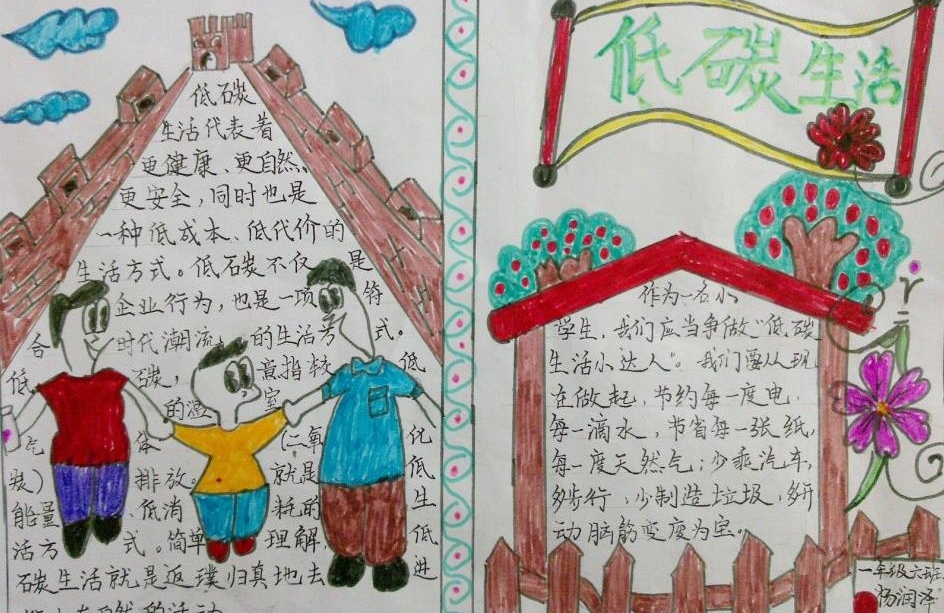 低碳生活
低碳
生活代表着
更健康、更自然、
更安全，同时也是
一种低成本、低代价的
生活方式。低碳不仅是
企业行为，也是一项符
合时代潮流的生活方式。
低碳，意指较低
的温室
气体（二氧化
碳）排放。就是低
能量、低消耗的生
活方式。简单理解，低
碳生活就是返璞归真地去进
作为一名小
学生，我们应当争做“低碳
生活小达人”。我们要从现
在做起，节约每一度电，
每一滴水，节省每一张纸，
每一度天然气；少乘汽车，
多步行，少制造垃圾，多开
动脑筋变废为宝。
一年级六班
杨润泽